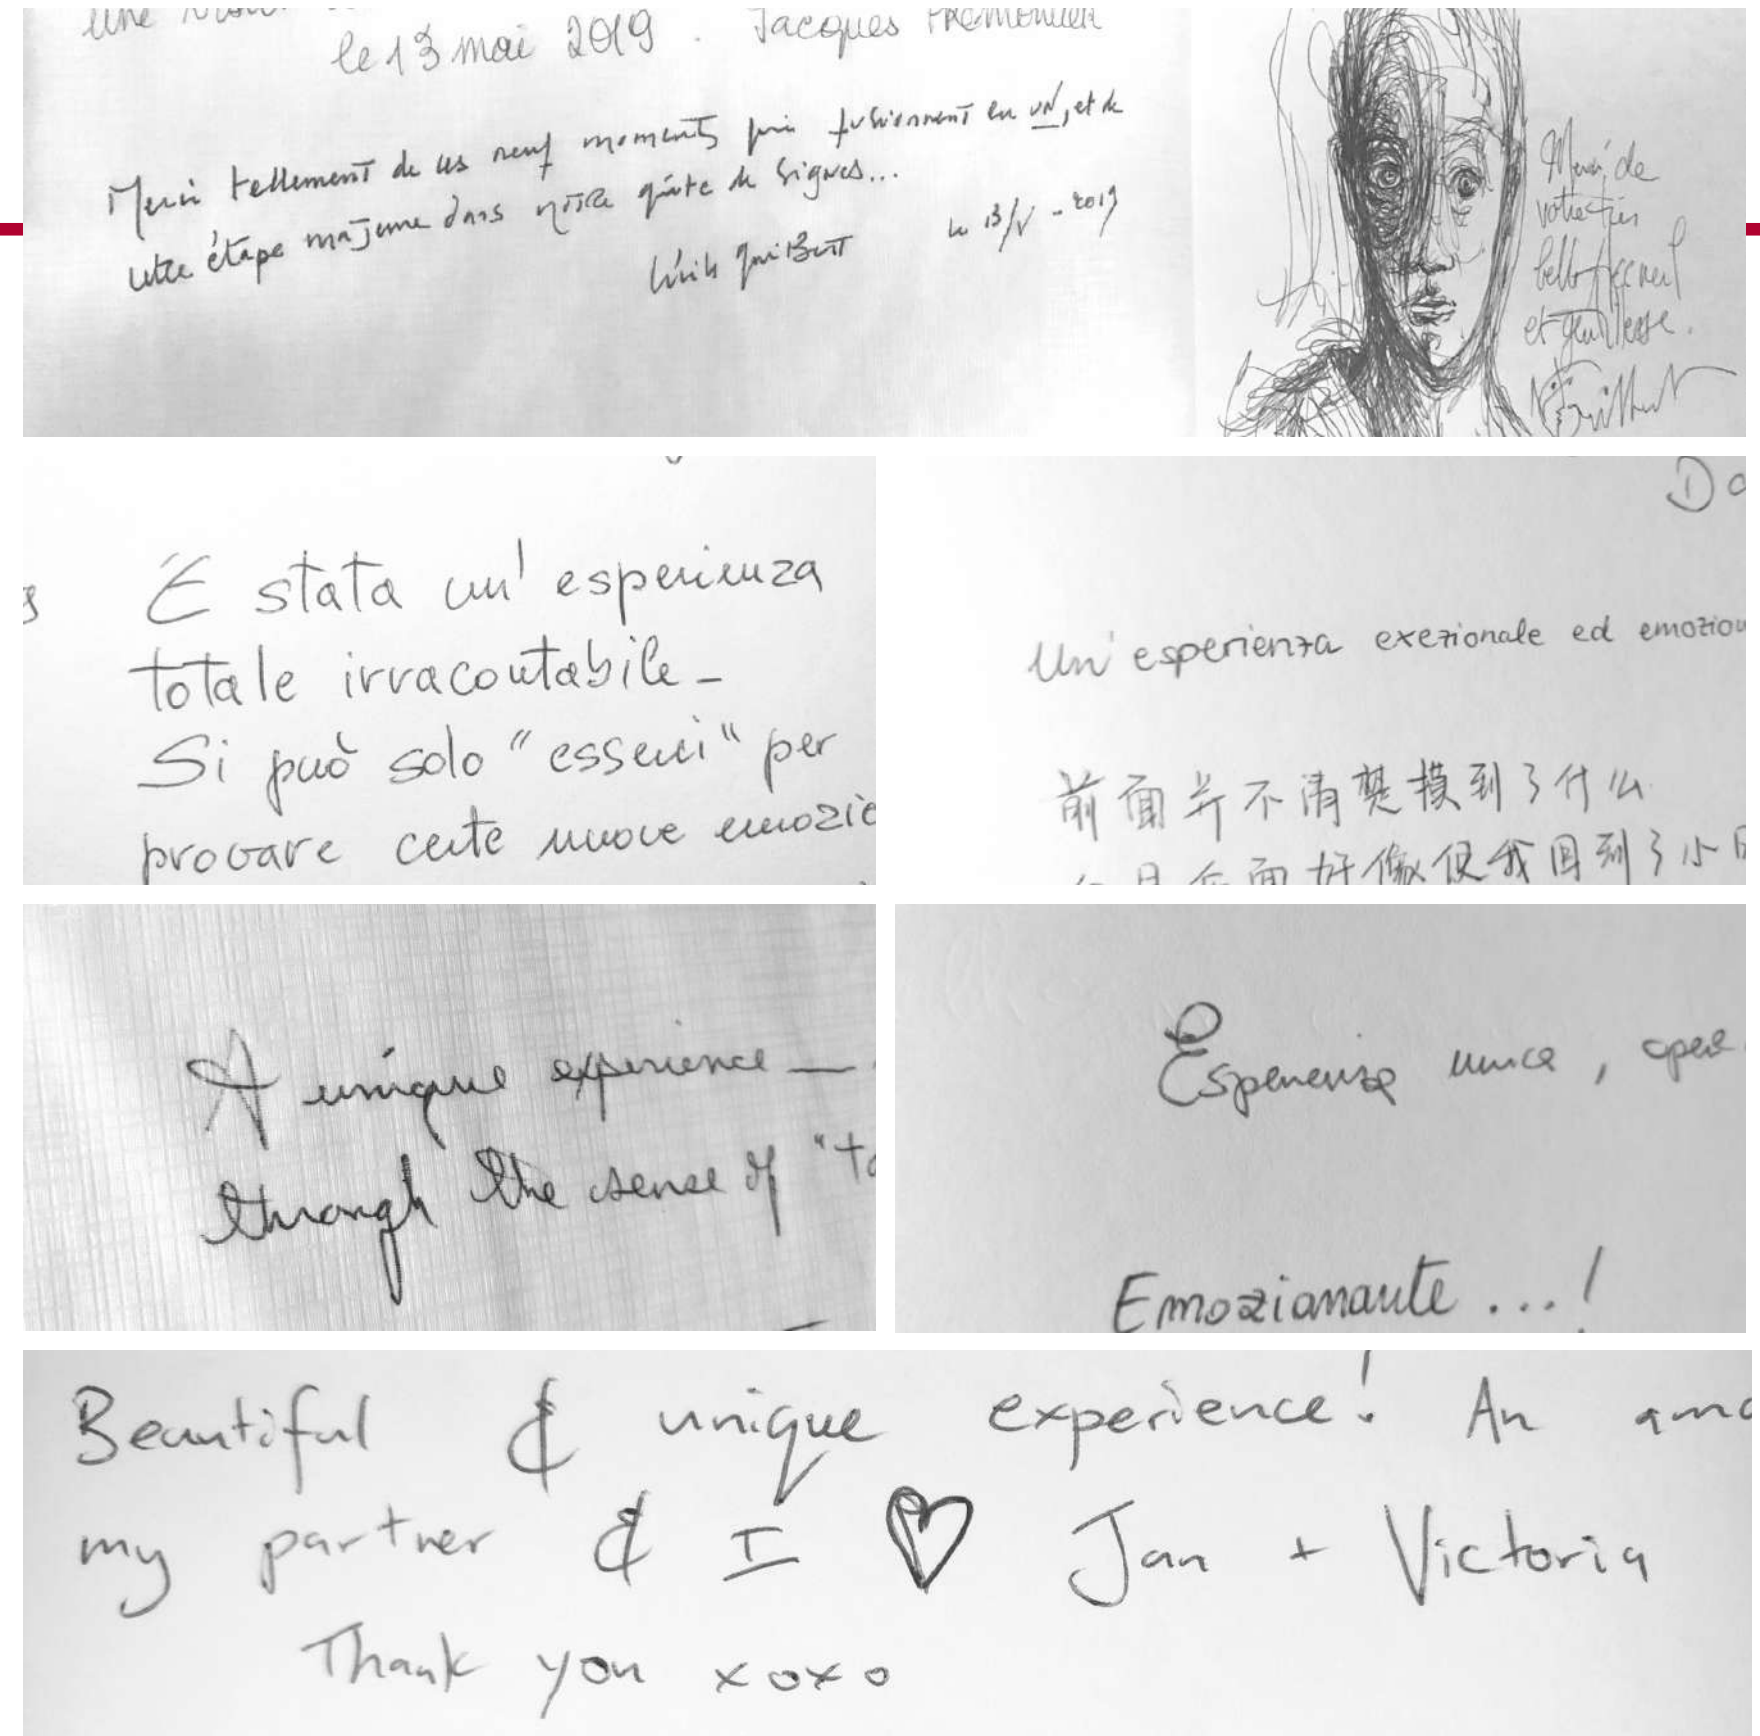 une
le 13 mai 2019. Jacques
Merci tellement de ces neuf moments qui fusionnent en UN, et de
cette étape majeure dans notre quête de signes...
le 13/V - 2019
Merci de
votre très
bel accueil
et gentillesse.
È stata un' esperienza
totale irracontabile -
Si può solo "esserci" per
provare certe nuove emozio
Do
Un'esperienza exezionale ed emozion
前面并不清楚摸到了什么
后面好像使我回到了小
A unique experience —
through the sense of "to
Esperienza unica, opera
Emozionante ...!
Beautiful & unique experience! An ama
my partner & I ♡ Jan + Victoria
Thank you xoxo